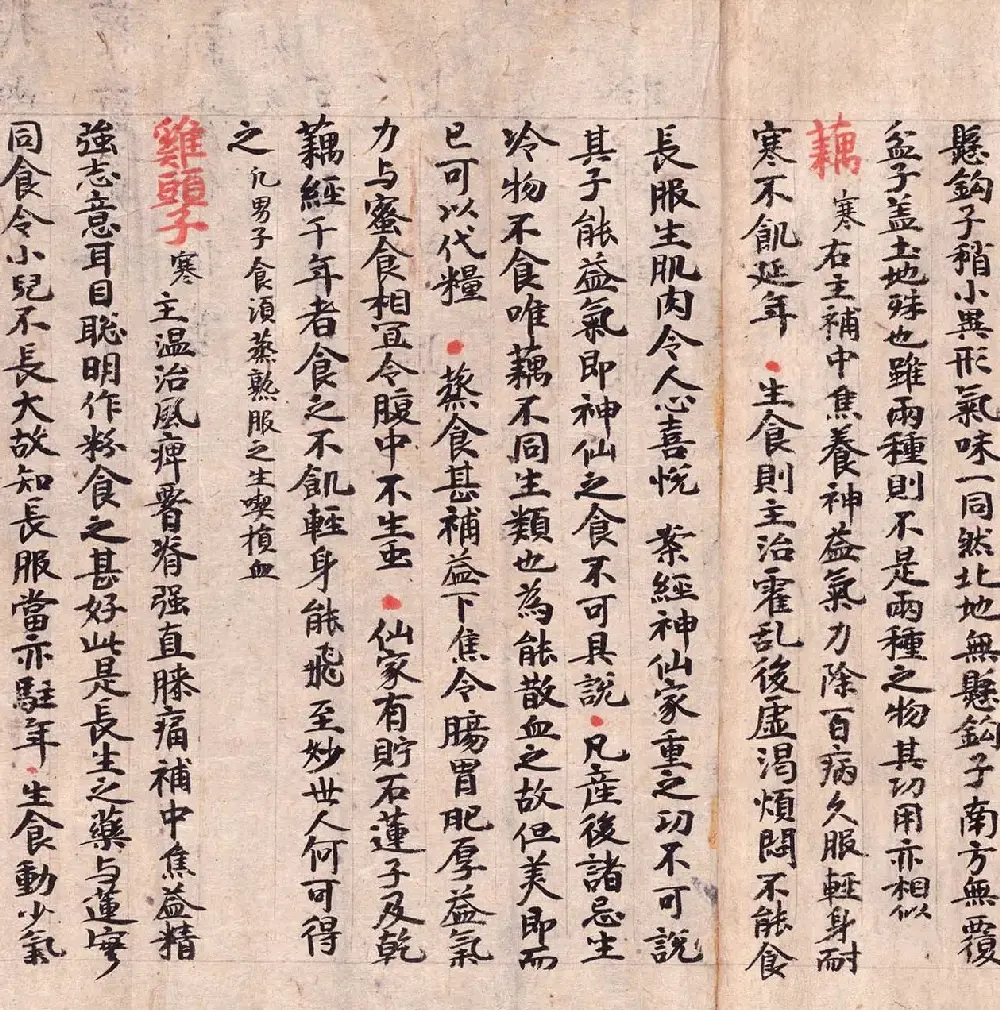 懸鈎子稍小異形氣味一同然北地無懸鈎子南方無覆
盆子盖土地殊也雖兩種則不是兩種之物其功用亦相似
藕 寒 右主補中焦養神益氣力除百病久服輕身耐
寒不飢延年 ・生食則主治霍乱後虛渴煩悶不能食
長服生肌肉令人心喜悅 案經神仙家重之功不可說
其子能益氣即神仙之食不可具說・凡産後諸忌生
冷物不食唯藕不同生類也為能散血之故但美即而
已可以代糧 ・蒸食甚補益下焦令腸胃肥厚益氣
力与蜜食相宜令腹中不生虫 ・仙家有貯石蓮子及乾
藕經千年者食之不飢輕身能飛至妙世人何可得
之 凡男子食須蒸熟服之生喫損血
雞頭子 寒 主温治風痺腰脊强直膝痛補中焦益精
強志意耳目聡明作粉食之甚好此是長生之藥与蓮實
同食令小兒不長大故知長服當亦駐年・生食動少氣